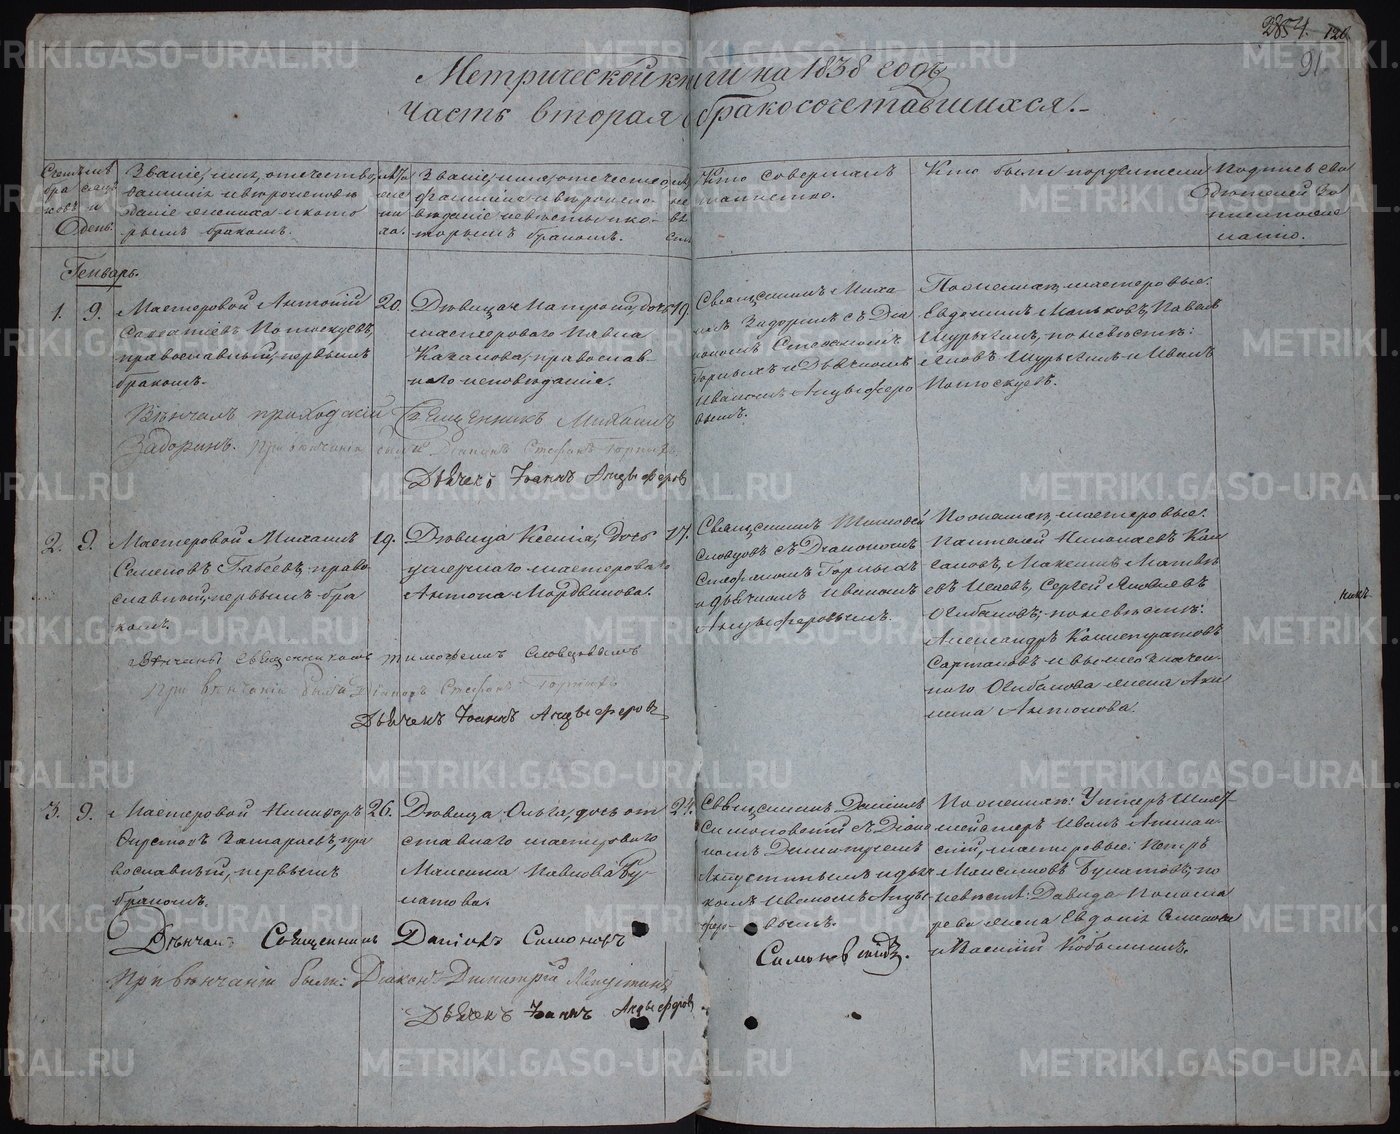 284. 120
91
Метрической книги на 1838 годъ
Часть вторая о бракосочетавшихся.
Счетъ бра ковъ
Мѣсяцъ и день.
Званіе, имя, отечество,
фамилія и вѣроисповѣ
даніе жениха и кото
рымъ бракомъ.
Лѣта жениха.
Званіе, имя, отечество,
фамилія и вѣроиспо
вѣданіе невѣсты и ко-
торымъ бракомъ.
Кто совершалъ
таинство.
Кто были поручители
Подпись сви
дѣтелей за
писи по же
ланію.
Генварь.
1. 9. Мастеровой Антоній
Потоскуевъ,
православный, первымъ
бракомъ.
20.
Дѣвица Матрона, дочь
мастерового Павла
Качалова, православ-
наго исповѣданія.
19.
Священникъ Миха
илъ Задоринъ съ Діа
кономъ Стефаномъ
Горныхъ и Дьячкомъ
Иваномъ Анцыферо
вымъ.
По женихѣ, мастеровые:
Евдокимъ Маньковъ, Павелъ
Шурыгинъ, по невѣстѣ:
Яковъ Шурыгинъ и Иванъ
Потоскуевъ.
Вѣнчалъ приходскій Священникъ Михаилъ
Задоринъ. При вѣнчаніи были: Діаконъ Стефанъ Горныхъ
Дьячекъ Іоаннъ Анцыферовъ
2. 9. Мастеровой Михаилъ
Семеновъ Бабѣевъ, право
славной, первымъ бра
комъ.
19.
Дѣвица Ксенія, дочь
умершаго мастерового
Антона Мордвинова.
17.
Священникъ Тимофей
Словцовъ съ Діакономъ
Стефаномъ Горныхъ
и дьячкомъ Иваномъ
Анцыферовымъ.
По женихѣ, мастеровые:
Пантелей Николаевъ
Максимъ Матвѣ
евъ Сергей Яковлевъ
по невѣстѣ:
Александръ
и вышеозначен-
наго жена Аки
лина Антонова
никъ
Вѣнчаны священникомъ Тимофеемъ Словцовымъ
При вѣнчаніи были: Діаконъ Стефанъ Горныхъ
Дьячекъ Іоаннъ Анцыферовъ
3. 9. Мастеровой Никифоръ
пра
вославный, первымъ
бракомъ.
26.
Дѣвица Ольга, дочь от
ставнаго мастерового
Максима Павлова Бу
латова.
24.
Священникъ Даніилъ
Симоновскій съ Діако
номъ Димитріемъ
и дьяч
комъ Иваномъ Анцы
феро- вымъ.
По женихѣ: Унтеръ Шихт
мейстеръ Иванъ
мастеровые: Петръ
Максимовъ Булатовъ, по
невѣстѣ: Давида Понома
рева жена Евдокія Семенова
и Василій Кобылинъ.
Вѣнчалъ Священникъ Даніилъ Симонов
Симоновскій.
При вѣнчаніи были: Діаконъ Димитрій
Дьячекъ Іоаннъ Анцыферовъ
METRIKI.GASO-URAL.RU